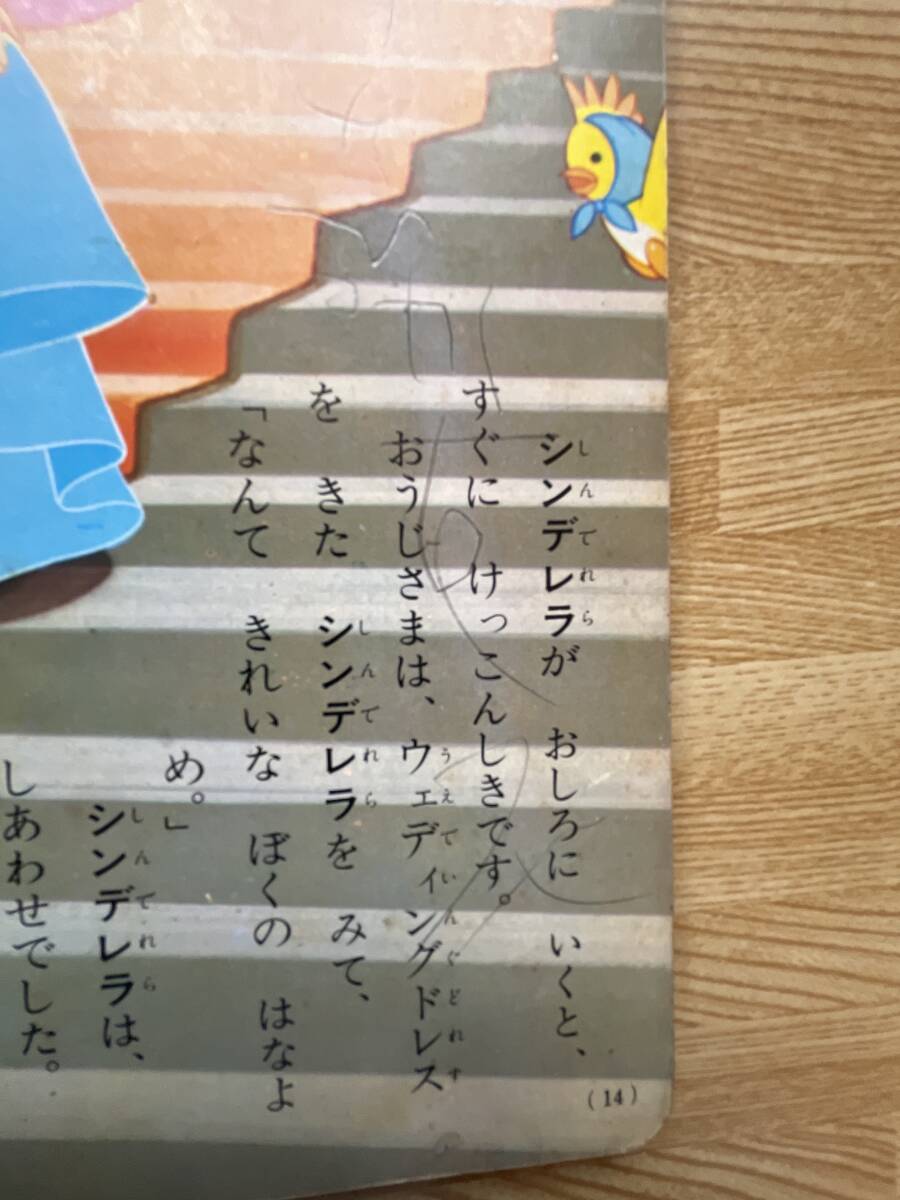 シンデレラが おしろに いくと、
すぐに けっこんしきです。
おうじさまは、ウェディングドレス
を きた シンデレラを みて、
「なんて きれいな ぼくの はなよ
め。」
シンデレラは、
しあわせでした。
(14)